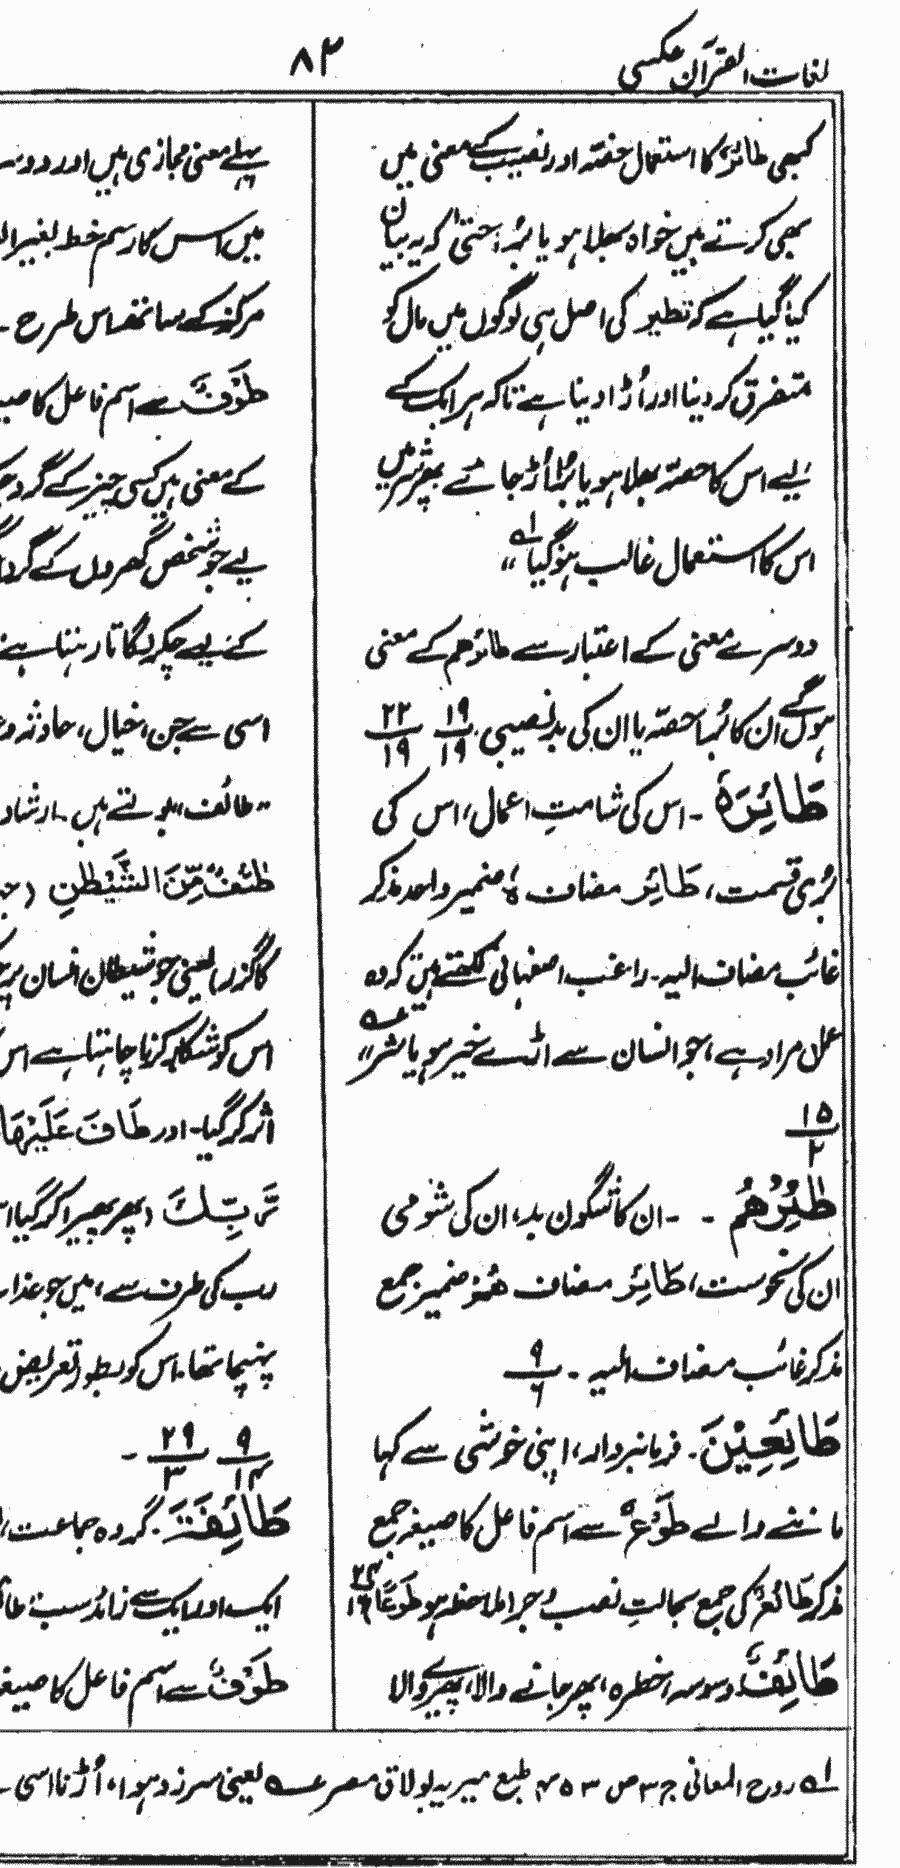 لغات القرآن عکسی
۸۲
کبھی طائرٌ کا استعمال حصّہ اور نصیب کے معنی میں
بھی کرتے ہیں خواہ بھلا ہو یا بُرا، حتیٰ کہ یہ بیان
کیا گیا ہے کہ تطیر کی اصل ہی لوگوں میں مال کو
متفرق کر دینا اور اُڑا دینا ہے تاکہ ہر ایک کے
لیے اس کا حصّہ بھلا ہو یا بُرا اُڑ جائے پھر شر میں
اس کا استعمال غالب ہو گیا ؂۱ "
دوسرے معنی کے اعتبار سے طائرھم کے معنی
ہوں گے ان کا بُرا حصّہ یا ان کی بد نصیبی ۱۹/۱۹ ۲۲/۱۹
طَائِرَہٗ ۔ اس کی شامتِ اعمال، اس کی
بُری قسمت، طَائِر مضاف ہٗ ضمیر واحد مذکر
غائب مضاف الیہ۔ راغب اصفہانی لکھتے ہیں کہ وہ
عمل مراد ہے، جو انسان سے اڑے خیر ہو یا شر " عہ
۱۵/۲
طٰٓئِرُهُمْ ۔ ۔ ان کا شگون بد، ان کی شومی
ان کی نحوست، طَائِرُ مضاف ھُمْ ضمیر جمع
مذکر غائب مضاف الیہ ۔ ۹/۶
طَائِعِیْنَ ۔ فرمانبردار، اپنی خوشی سے کہا
ماننے والے طَوْعٌ سے اسم فاعل کا صیغہ جمع
مذکر طَائِعٌ کی جمع بحالتِ نصب و جر (ملاحظہ ہو طَوْعًا) ۲۴/۱۶
طَائِفٌ وسوسہ، خطرہ، پھر جانے والا، پھیرے والا
پہلے معنی مجازی ہیں اور دوسر
۱۶
میں اس کا رسم خط بغیر ال
مرکز کے ساتھ اس طرح ۔
طَوْفٌ سے اسم فاعل کا صیغ
کے معنی ہیں کسی چیز کے گرد
لیے جو شخص گھروں کے گرد
کے لیے چکر لگاتا رہتا ہے
اسی سے جن، خیال، حادثہ و
"طائف" بولتے ہیں۔ ارشاد
طٰٓئِفٌ مِّنَ الشَّیْطٰنِ (
کا گزر) یعنی جو شیطان انسان پر
اس کو شکار کرنا چاہتا ہے اس
اثر کر گیا۔ اور طَافَ عَلَیْهَا
رَّبِّكَ (پھر پھیرا کر گیا ا
رب کی طرف سے) میں جو عذاب
پہنچا تھا۔ اس کو بطور تعریض
۹/۱۴ ۲۹/۳ ۔
طَائِفَۃ ۔ گروہ، جماعت،
ایک اور ایک سے زائد سب
طَوْفٌ سے اسم فاعل کا صیغہ
؂۱ روح المعانی ج ۳ ص ۴۵۳ طبع میریہ بولاق مصر عہ یعنی سرزد ہوا، اُڑنا اسی